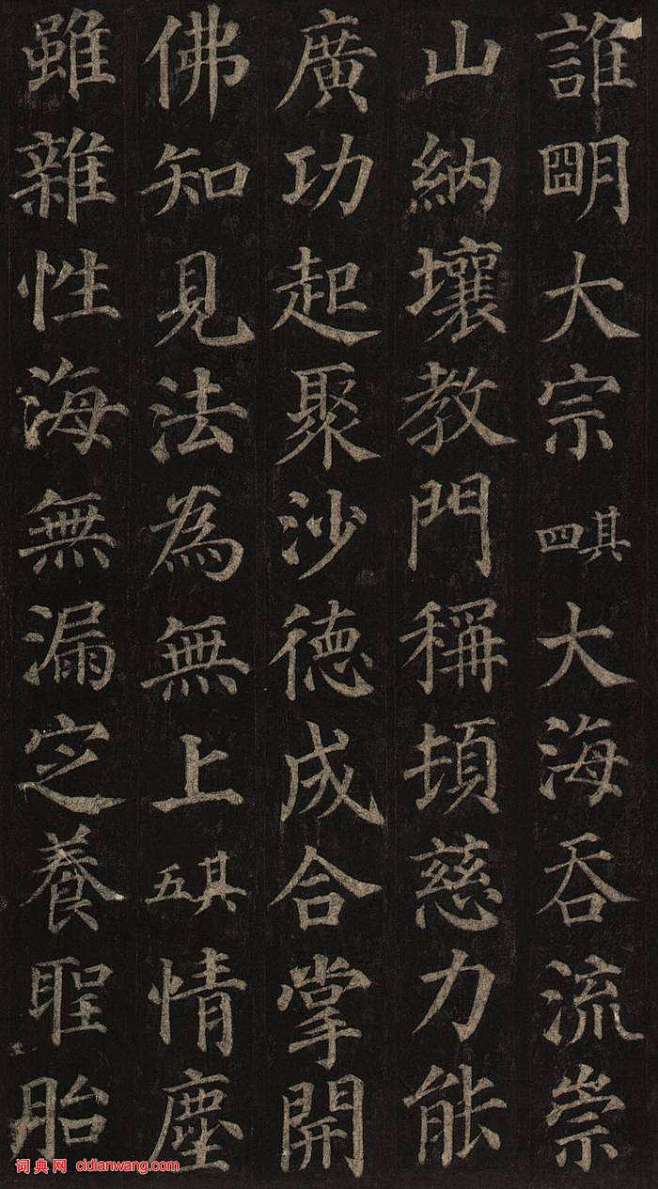 誰明大宗其四大海吞流崇
山納壤教門稱頓慈力能
廣功起聚沙德成合掌開
佛知見法為無上其五情塵
雖雜性海無漏定養聖胎
词典网 cidianwang.com